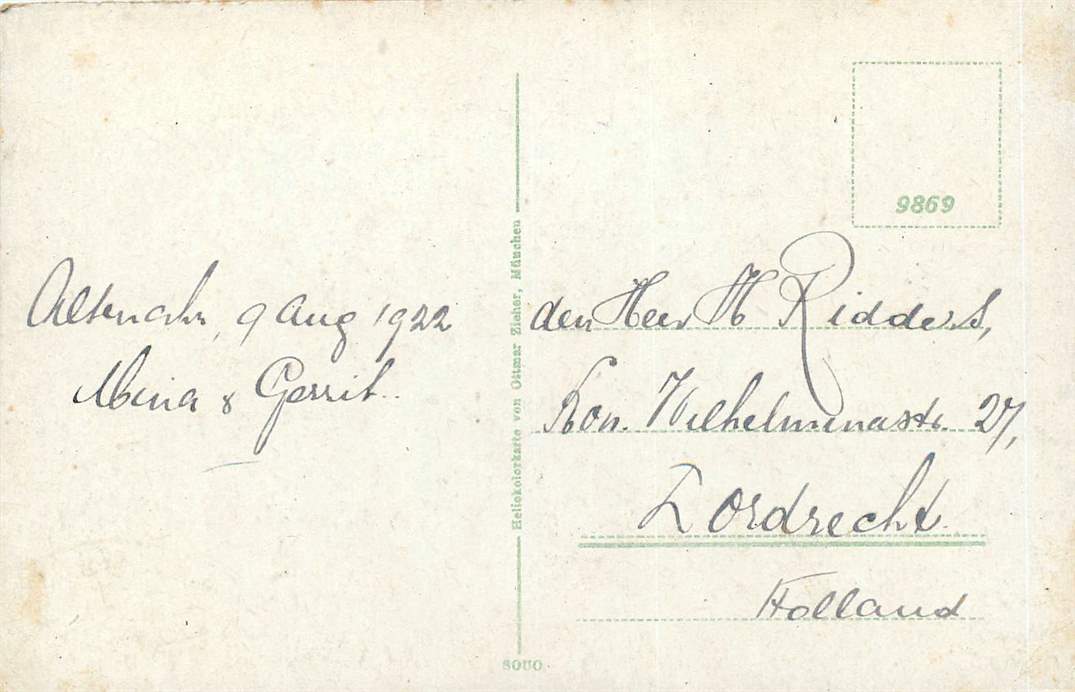 Altenahr, 9 Aug 1922
Mina & Gerrit.
Heliokolorkarte von Ottmar Zieher, München
9869
den Heer H Ridders,
Kon. Wilhelminastr. 27,
Dordrecht.
Holland